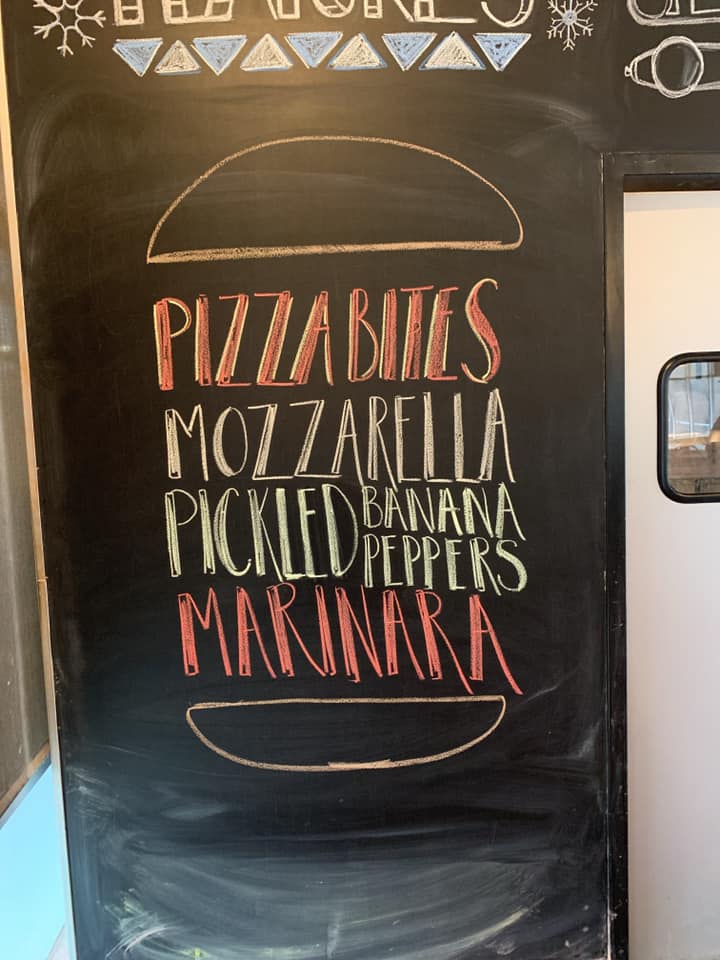 FEATURES
PIZZA BITES
MOZZARELLA
PICKLED BANANA
PEPPERS
MARINARA